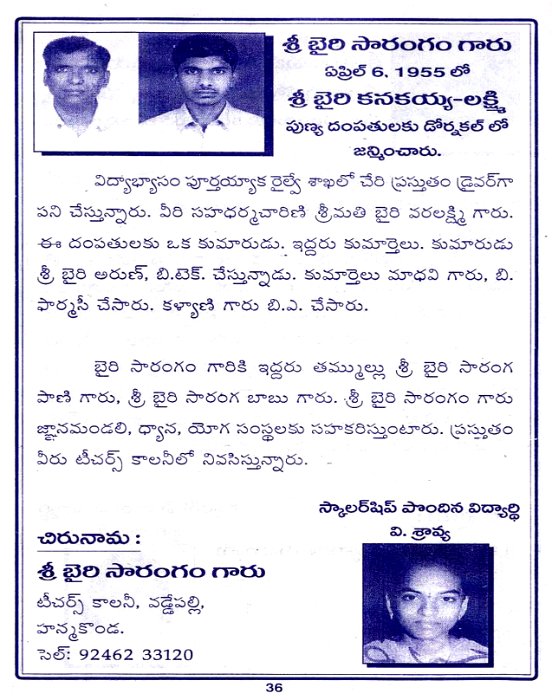 శ్రీ బైరి సారంగం గారు
ఏప్రిల్ 6, 1955 లో
శ్రీ బైరి కనకయ్య-లక్ష్మి
పుణ్య దంపతులకు డోర్నకల్ లో
జన్మించారు.
విద్యాభ్యాసం పూర్తయ్యాక రైల్వే శాఖలో చేరి ప్రస్తుతం డ్రైవర్‌గా
పని చేస్తున్నారు. వీరి సహధర్మచారిణి శ్రీమతి బైరి వరలక్ష్మి గారు.
ఈ దంపతులకు ఒక కుమారుడు. ఇద్దరు కుమార్తెలు. కుమారుడు
శ్రీ బైరి అరుణ్, బి.టెక్. చేస్తున్నాడు. కుమార్తెలు మాధవి గారు, బి.
ఫార్మసీ చేసారు. కళ్యాణి గారు బి.ఎ. చేసారు.
బైరి సారంగం గారికి ఇద్దరు తమ్ముల్లు శ్రీ బైరి సారంగ
పాణి గారు, శ్రీ బైరి సారంగ బాబు గారు. శ్రీ బైరి సారంగం గారు
జ్ఞానమండలి, ధ్యాన, యోగ సంస్థలకు సహకరిస్తుంటారు. ప్రస్తుతం
వీరు టీచర్స్ కాలనీలో నివసిస్తున్నారు.
స్కాలర్‌షిప్ పొందిన విద్యార్థి
వి. శ్రావ్య
చిరునామ :
శ్రీ బైరి సారంగం గారు
టీచర్స్ కాలనీ, వడ్డేపల్లి,
హన్మకొండ.
సెల్: 92462 33120
36